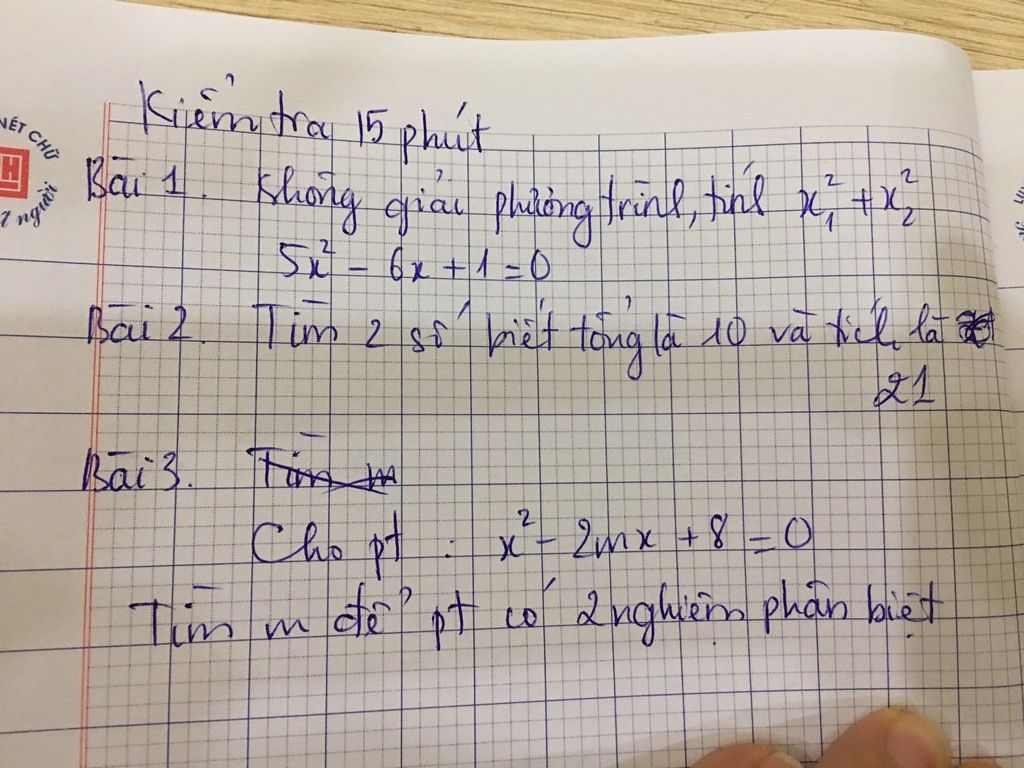 Kiểm tra 15 phút
Bài 1. Không giải phương trình, tính x₁² + x₂²
5x² - 6x + 1 = 0
Bài 2. Tìm 2 số biết tổng là 10 và tích là
21
Bài 3. Tìm m
Cho pt : x² - 2mx + 8 = 0
Tìm m để pt có 2 nghiệm phân biệt
NÉT CHỮ
H
người